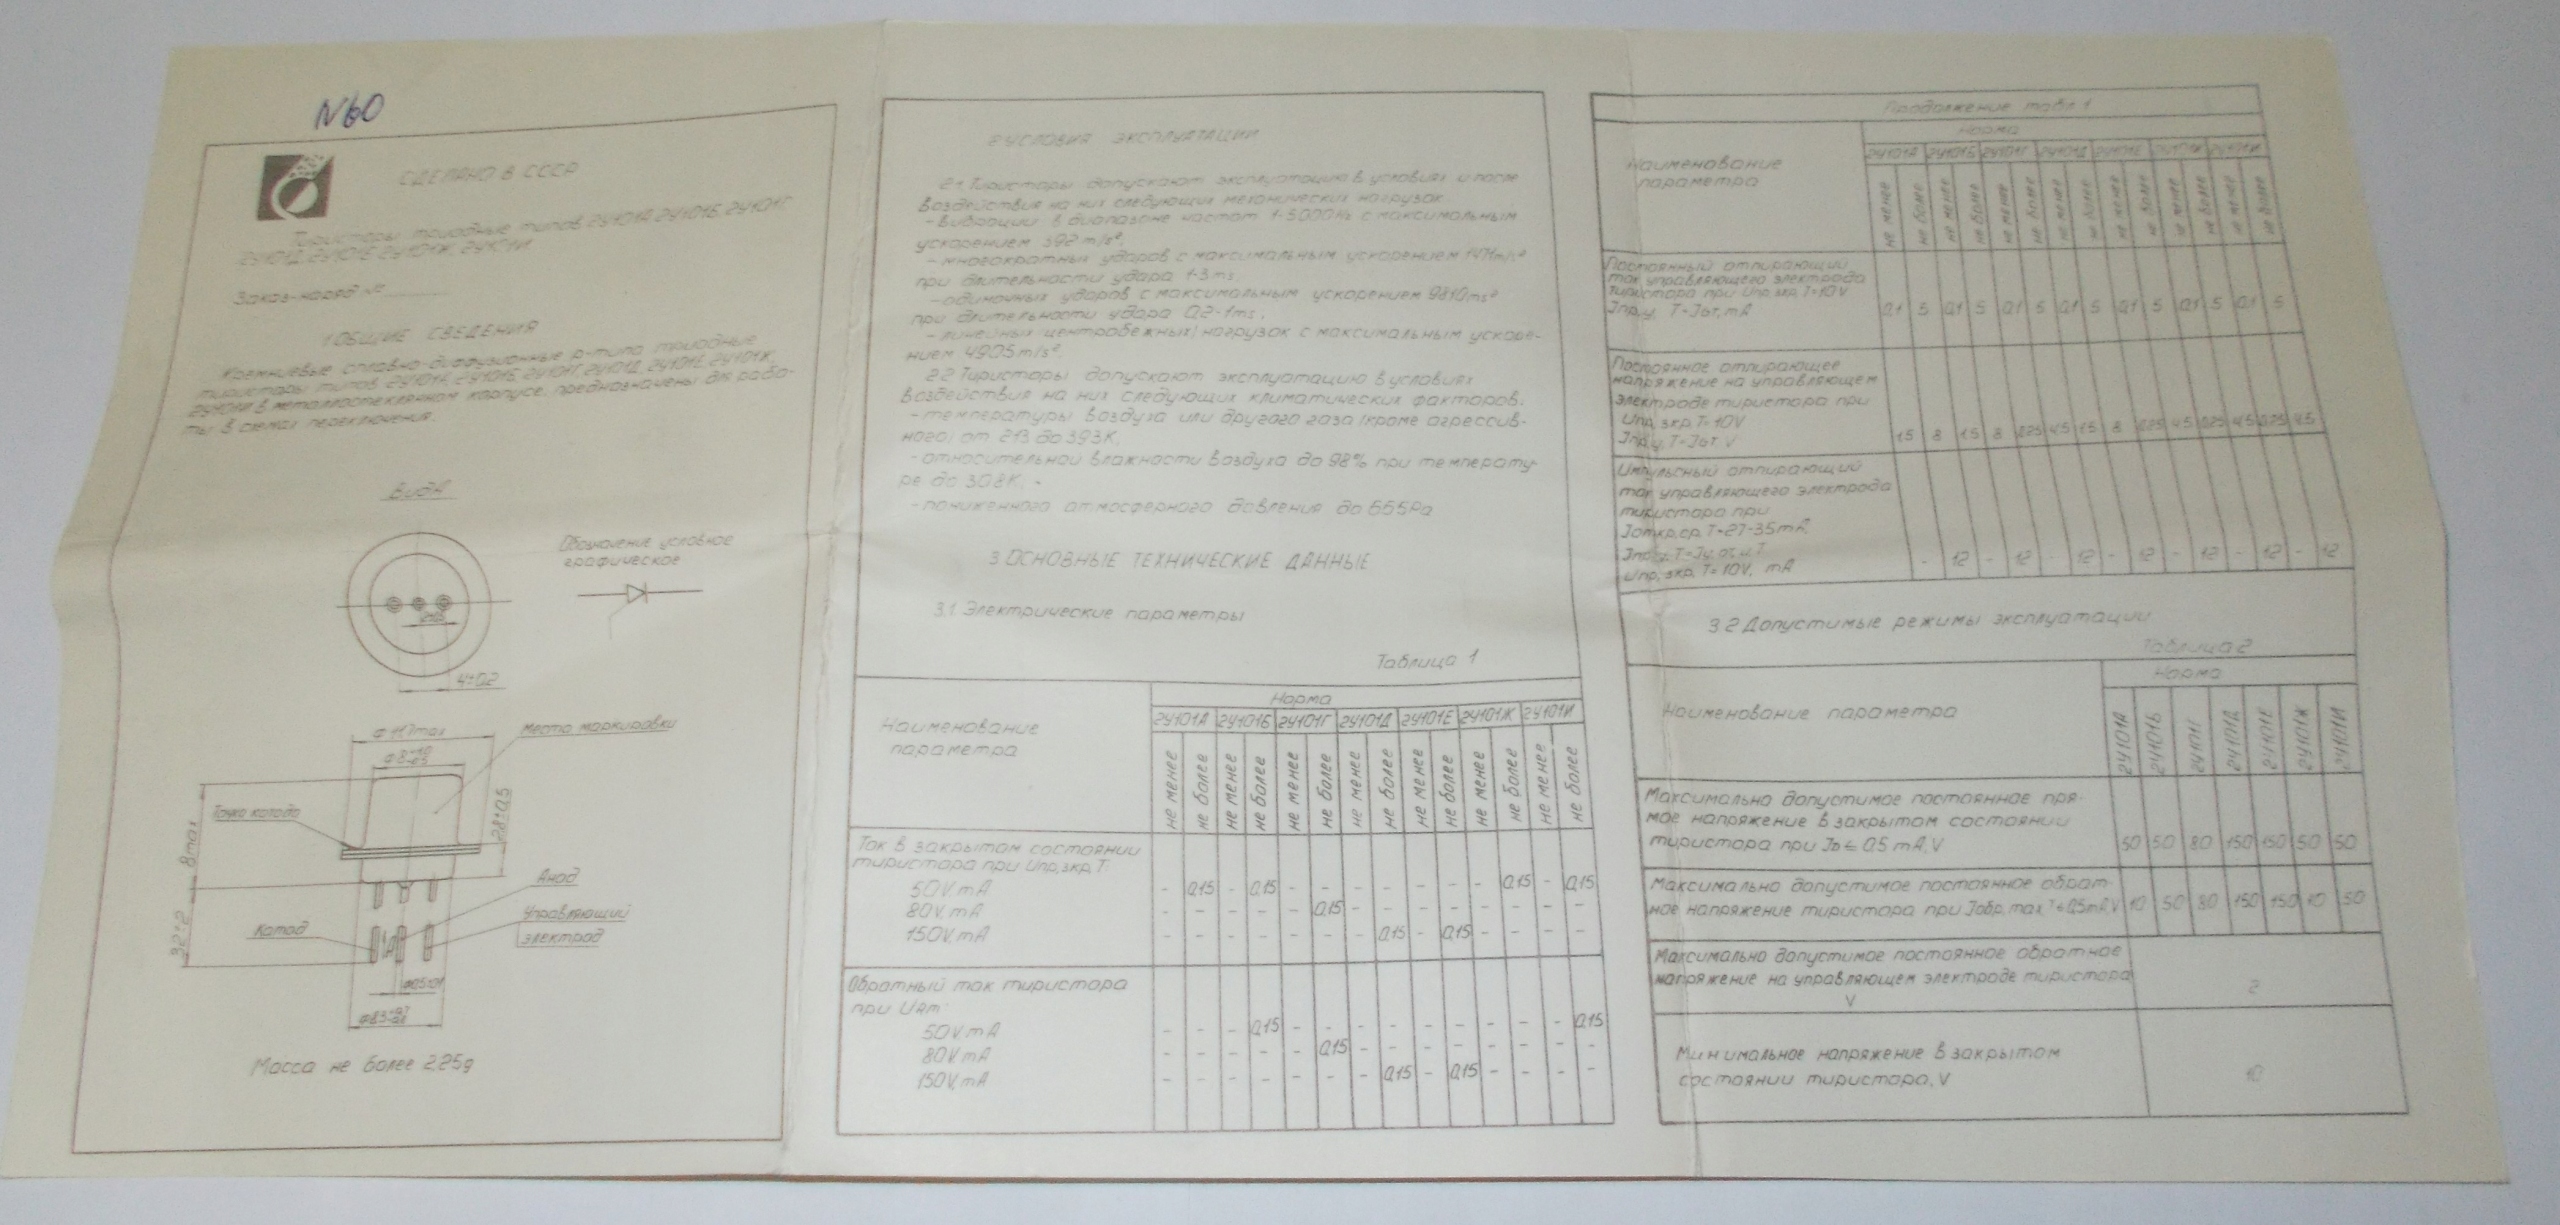 N60
СДЕЛАНО В СССР
Тиристоры триодные типов 2У101А, 2У101Б, 2У101Г,
2У101Д, 2У101Е, 2У101Ж, 2У101И
Заказ-наряд №
1 ОБЩИЕ СВЕДЕНИЯ
Кремниевые сплавно-диффузионные p-типа триодные
тиристоры типов 2У101А, 2У101Б, 2У101Г, 2У101Д, 2У101Е, 2У101Ж,
2У101И в металлостеклянном корпусе, предназначены для рабо-
ты в схемах переключения.
Вид А
Обозначение условное
графическое
4±0,2
Ф 11,7max
Места маркировки
Точка катода
8max
28±0,5
Анод
Управляющий
электрод
Катод
32±2
Ф0,5±0,1
Масса не более 2,25g
2 УСЛОВИЯ ЭКСПЛУАТАЦИИ
2.1. Тиристоры допускают эксплуатацию в условиях и после
воздействия на них следующих механических нагрузок
- вибрации в диапазоне частот 1-5000Hz с максимальным
ускорением 392 m/s²,
- многократных ударов с максимальным ускорением 1471m/s²
при длительности удара 1-3ms
- одиночных ударов с максимальным ускорением 9810ms²
при длительности удара 0,2-1ms,
- линейных центробежных) нагрузок с максимальным ускоре-
нием 4905m/s².
2.2 Тиристоры допускают эксплуатацию в условиях
воздействия на них следующих климатических факторов:
- температуры воздуха или другого газа (кроме агрессив-
ного) от 213 до 393К,
- относительной влажности воздуха до 98% при температу-
ре до 308К,
- пониженного атмосферного давления до 665Pa
3 ОСНОВНЫЕ ТЕХНИЧЕСКИЕ ДАННЫЕ
3.1. Электрические параметры
Таблица 1
Наименование параметра Норма
2У101А 2У101Б 2У101Г 2У101Д 2У101Е 2У101Ж 2У101И
не менее не более не менее не более не менее не более не менее не более не менее не более не менее не более не менее не более
Ток в закрытом состоянии
тиристора при Uпр,зкр,Т:
50V, mA - 0,15 - 0,15 - - - - - - - 0,15 - 0,15
80V, mA - - - - - 0,15 - - - - - - - -
150V, mA - - - - - - - 0,15 - 0,15 - - - -
Обратный ток тиристора
при URm:
50V, mA - - - 0,15 - - - - - - - - - 0,15
80V, mA - - - - - 0,15 - - - - - - - -
150V, mA - - - - - - - 0,15 - 0,15 - - - -
Продолжение табл. 1
Наименование параметра Норма
2У101А 2У101Б 2У101Г 2У101Д 2У101Е 2У101Ж 2У101И
не менее не более не менее не более не менее не более не менее не более не менее не более не менее не более не менее не более
Постоянный отпирающий
ток управляющего электрода
тиристора при Uпр,зкр,Т=10V
Iпр,у, Т=Iот, mA 0,1 5 0,1 5 0,1 5 0,1 5 0,1 5 0,1 5 0,1 5
Постоянное отпирающее
напряжение на управляющем
электроде тиристора при
Uпр,зкр,Т=10V
Iпр,у, Т=Iот, V 1,5 8 1,5 8 0,25 4,5 1,5 8 0,25 4,5 0,25 4,5 0,25 4,5
Импульсный отпирающий
ток управляющего электрода
тиристора при
Iоткр,ср,Т=27-35mA,
Uпр,зкр,Т=10V, mA - 12 - 12 - 12 - 12 - 12 - 12 - 12
3.2 Допустимые режимы эксплуатации
Таблица 2
Наименование параметра Норма
2У101А 2У101Б 2У101Г 2У101Д 2У101Е 2У101Ж 2У101И
Максимально допустимое постоянное пря-
мое напряжение в закрытом состоянии
тиристора при Iо ≤ 0,5 mA, V 50 50 80 150 150 50 50
Максимально допустимое постоянное обрат-
ное напряжение тиристора при Iобр,max,Т≤0,5mA,V 10 50 80 150 150 10 50
Максимально допустимое постоянное обратное
напряжение на управляющем электроде тиристора
V 2
Минимальное напряжение в закрытом
состоянии тиристора, V 10